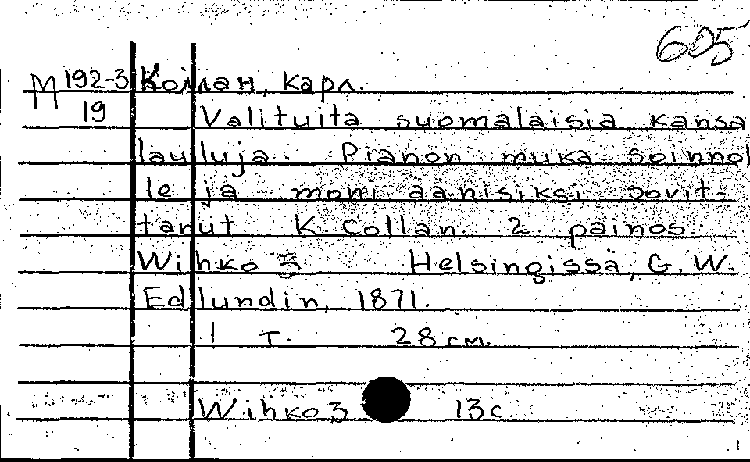 605
M 192-3 Коллан, Карл.
19 Valituita suomalaisia kansa
lauluja. Pianon muka soinnol
le ja moni äänisiksi sovit-
tanut K. Collan. 2. painos.
Wihko 3 Helsingissä, G. W.
Edlundin, 1871.
1 т. 28 см.
Wihko 3 13 с